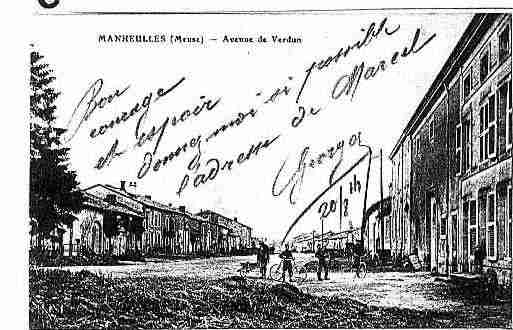 MANHEULLES (Meuse) — Avenue de Verdun
Bon
courage
et espoir
donnez moi si possible
l'adresse de Marcel
Georges
20/8 14